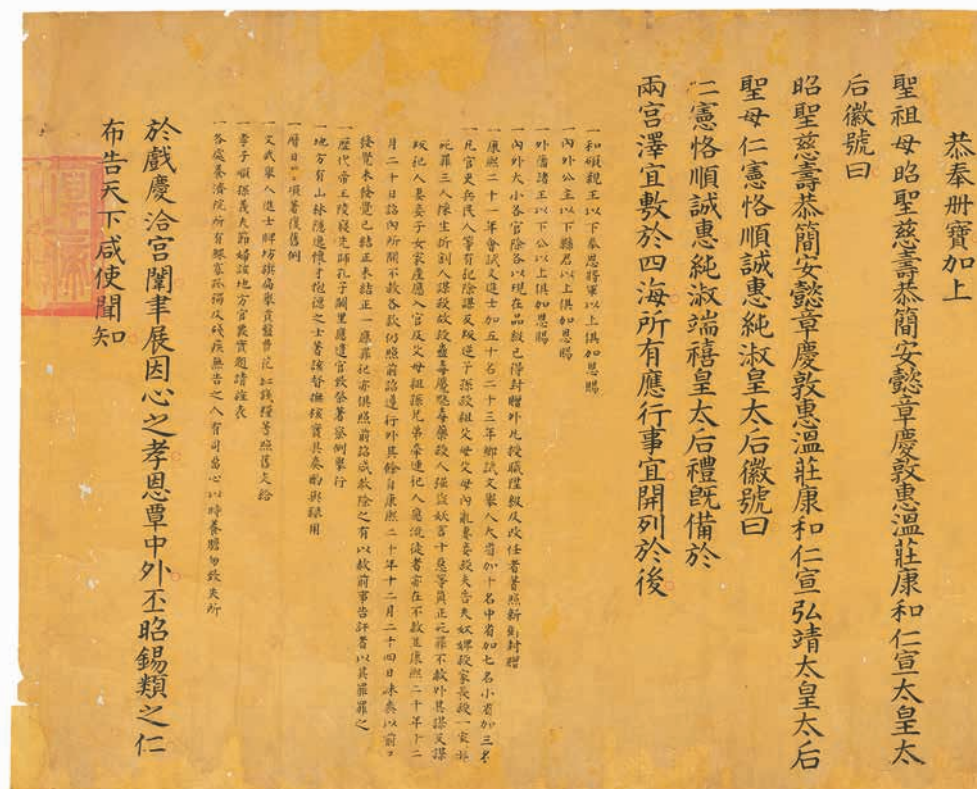 恭奉册寶加上
聖祖母昭聖慈壽恭簡安懿章慶敦惠溫莊康和仁宣太皇太
后徽號曰
昭聖慈壽恭簡安懿章慶敦惠溫莊康和仁宣弘靖太皇太后
聖母仁憲恪順誠惠純淑皇太后徽號曰
仁憲恪順誠惠純淑端禧皇太后禮旣備於
兩宮澤宜敷於四海所有應行事宜開列於後
一和碩親王以下奉恩將軍以上俱加恩賜
一內外公主以下縣君以上俱加恩賜
一外藩諸王以下公以上俱加恩賜
一內外大小各官除各以現在品級已得封贈外凡授職陞級及改任者著照新銜封贈
一康熙二十一年會試文進士加五十名二十三年鄉試文舉人大省加十名中省加七名小省加三名
一凡官吏兵民人等有犯除謀反叛逆子孫殺祖父母父母內亂妻妾殺夫告夫奴婢殺家長殺一家非
死罪三人採生折割人謀殺故殺蠱毒魘魅毒藥殺人強盜妖言十惡等眞正死罪不赦外其謀反謀
叛犯人妻妾子女家產應入官及父母祖孫兄弟牽連犯人應流徒者亦在不赦其康熙二十年十二
月二十日詔內所開不赦各款仍照前詔遵行外其餘自康熙二十年十二月二十四日昧爽以前已
發覺未發覺已結正未結正一應罪犯亦俱照前詔咸赦除之有以赦前事告訐者以其罪罪之
一歷代帝王陵寢先師孔子闕里應遣官致祭著察例舉行
一地方有山林隱逸懷才抱德之士著該督撫核實具奏酌與錄用
一曆日一項著復舊例
一文武舉人進士牌坊旗匾舉貢盤費花紅錢糧等照舊支給
一孝子順孫義夫節婦該地方官覈實題請旌表
一各處養濟院所有鰥寡孤獨及殘疾無告之人有司留心以時養贍勿致失所
於戲慶洽宮闈聿展因心之孝恩覃中外丕昭錫類之仁
布告天下咸使聞知